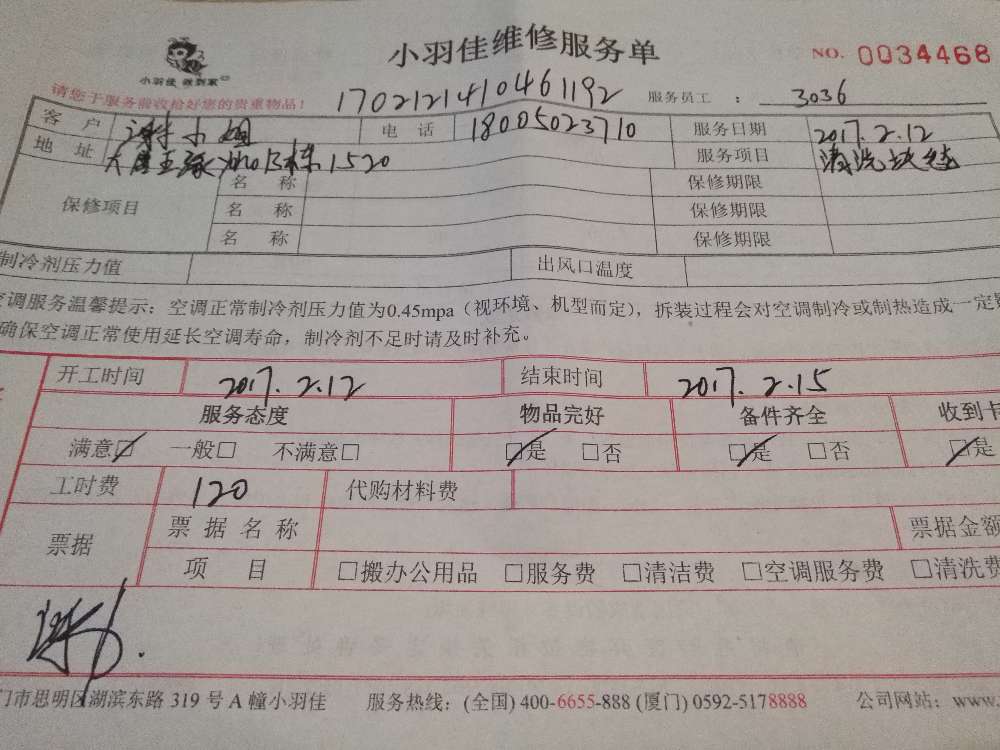 小羽佳 做到家
小羽佳维修服务单
NO. 0034468
请您于服务前收拾好您的贵重物品！
1702121410461192
服务员工 ： 3036
客 户 谢小姐 电 话 18005023710 服务日期 2017.2.12
地 址 1520 服务项目 清洗地毯
保修项目 名 称 保修期限
名 称 保修期限
名 称 保修期限
制冷剂压力值 出风口温度
空调服务温馨提示：空调正常制冷剂压力值为0.45mpa（视环境、机型而定），拆装过程会对空调制冷或制热造成一定
确保空调正常使用延长空调寿命，制冷剂不足时请及时补充。
开工时间 2017.2.12 结束时间 2017.2.15
服务态度 物品完好 备件齐全 收到卡
满意☑ 一般□ 不满意□ ☑是 □否 ☑是 □否 ☑是
工时费 120 代购材料费
票据 票 据 名 称 票据金额
项 目 □搬办公用品 □服务费 □清洁费 □空调服务费 □清洗费
门市思明区湖滨东路 319 号 A 幢小羽佳 服务热线：(全国) 400-6655-888 (厦门) 0592-5178888 公司网站：www.